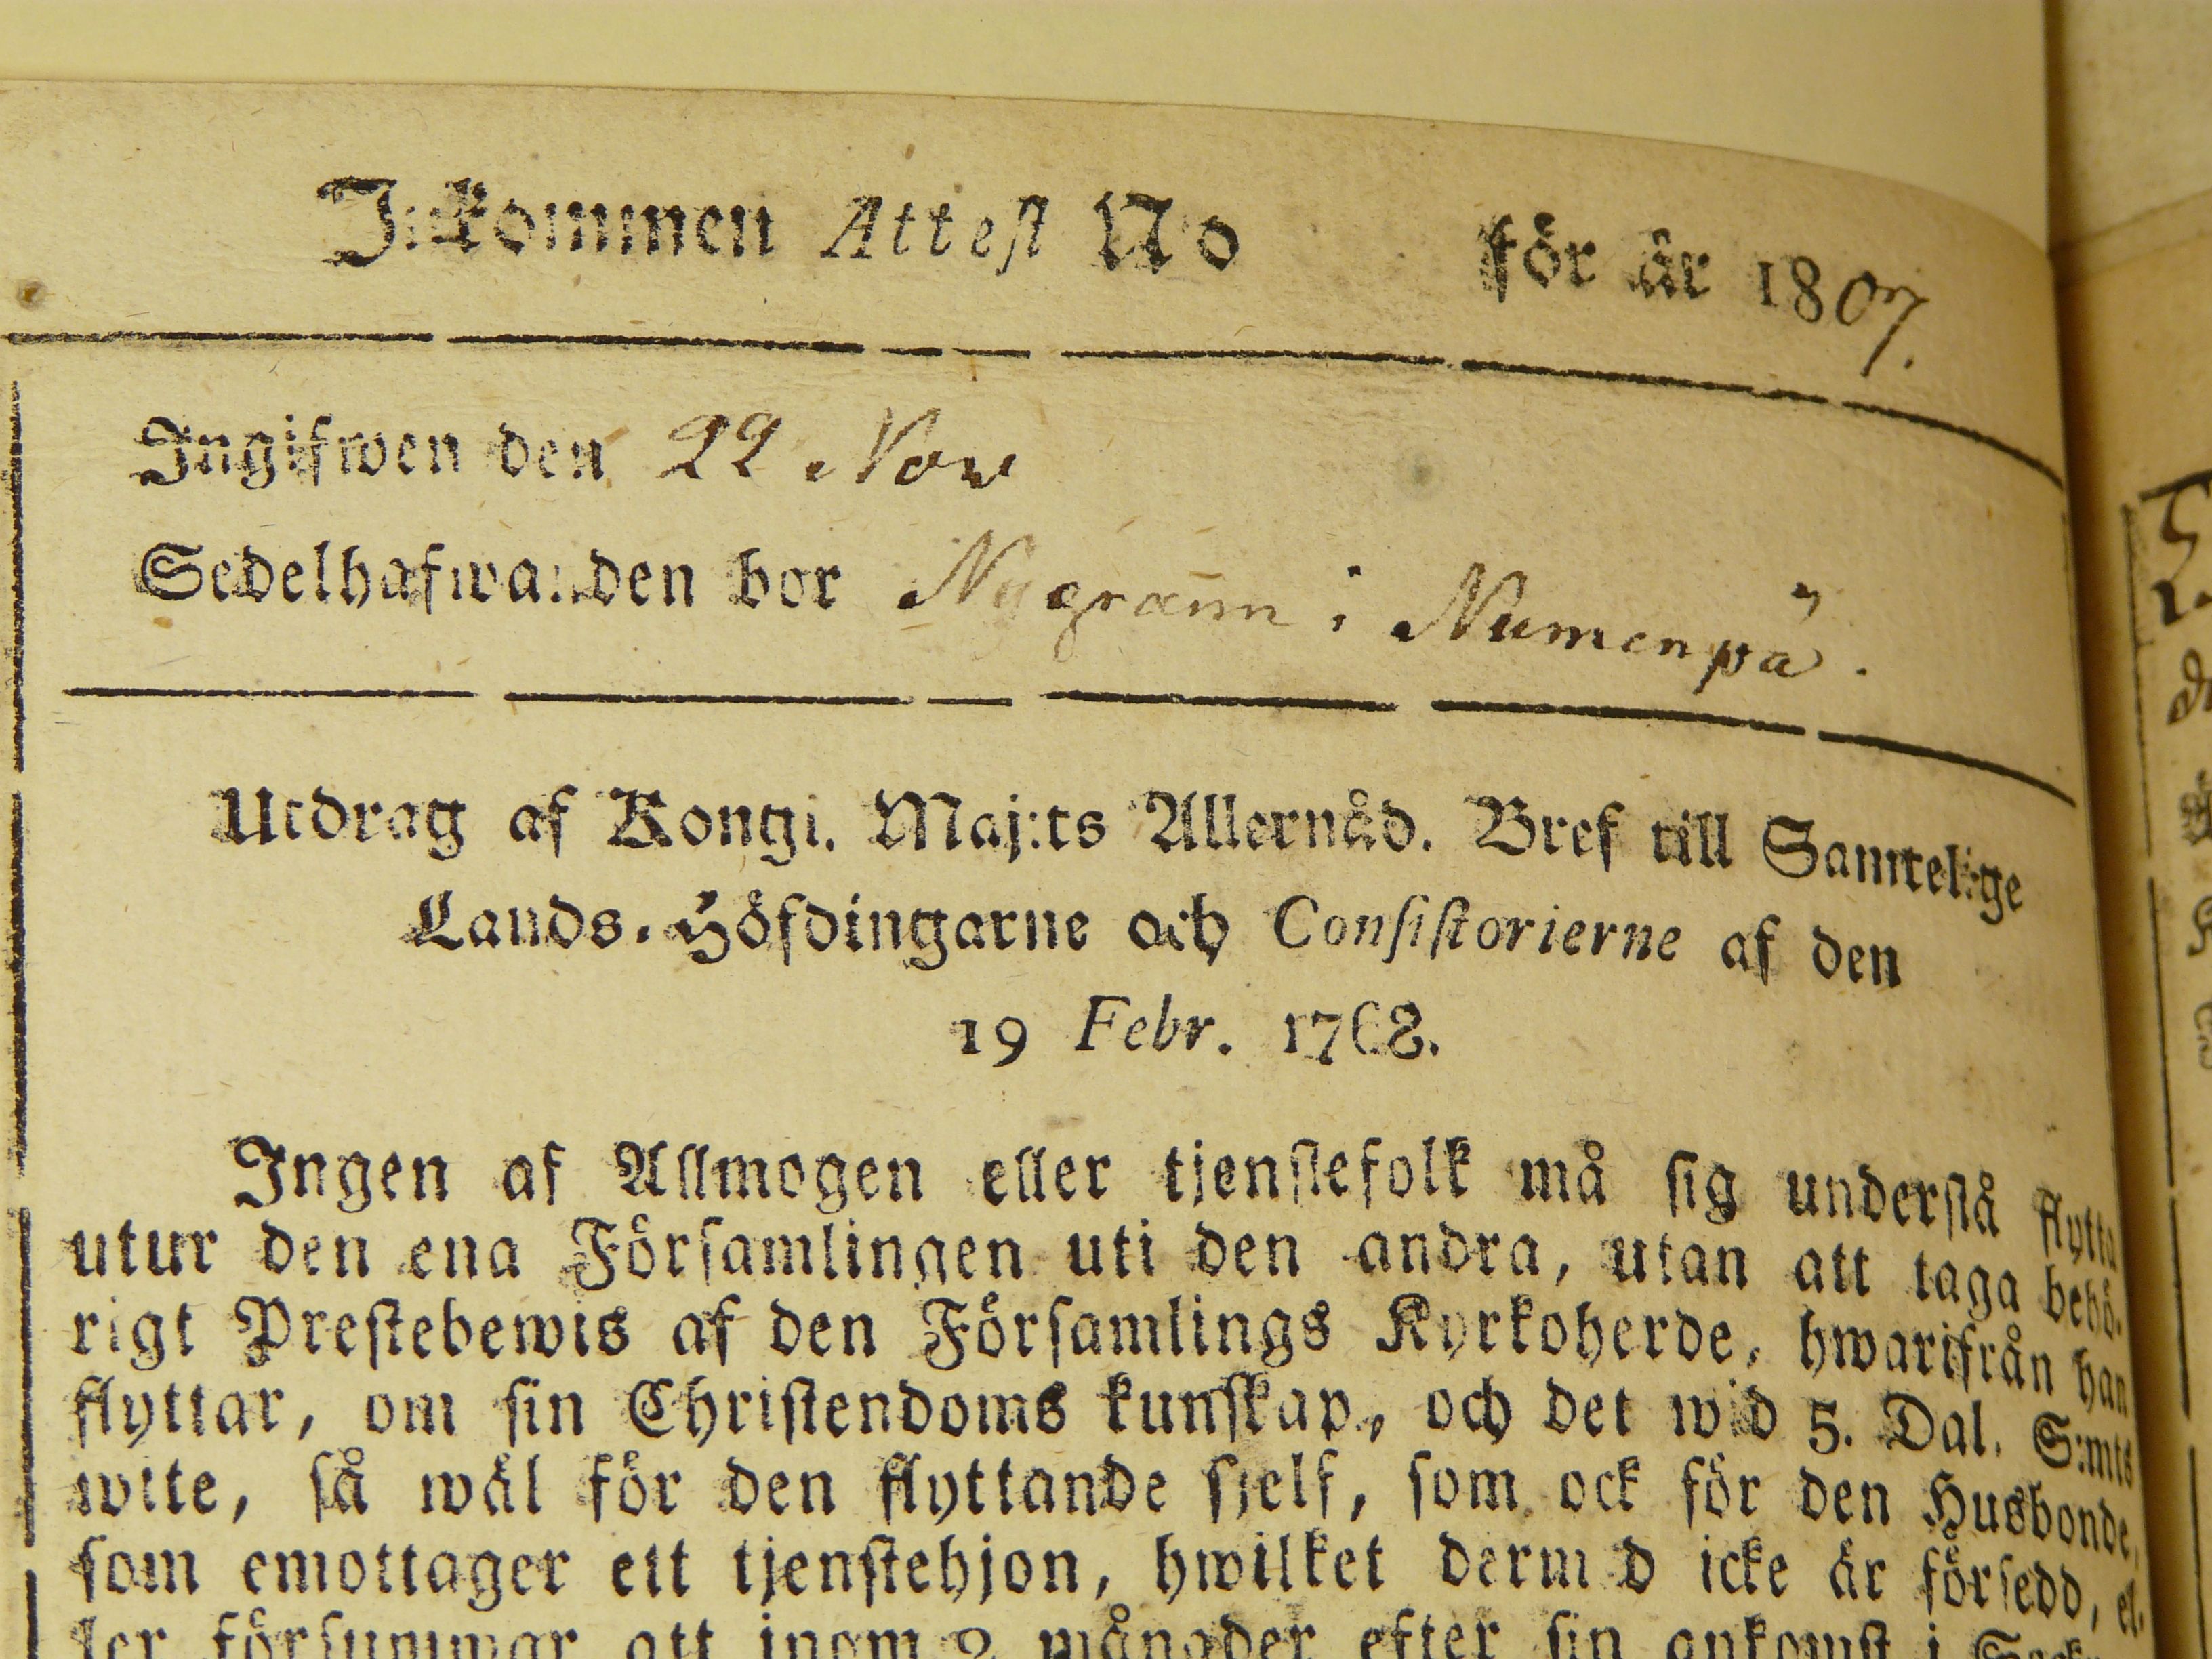 Inkommen Attest No för år 1807.
Ingifwen den 22 Nov
Sedelhafwanden bor Nygränn i Numenpä.
Utdrag af Kongl. Maj:ts Allernåd. Bref till Samtelige
Lands-Höfdingarne och Consistorierne af den
19 Febr. 1768.
Ingen af Allmogen eller tjenstefolk må sig understå flytta
utur den ena Församlingen uti den andra, utan att taga behö-
rigt Prestebewis af den Församlings Kyrkoherde, hwarifrån han
flyttar, om sin Christendoms kunskap, och det wid 5. Dal. S:mts
wite, så wäl för den flyttande sjelf, som ock för den Husbonde,
som emottager ett tjenstehjon, hwilket dermed icke är försedd, el-
ler försummar att inom 2 månader efter sin ankomst i